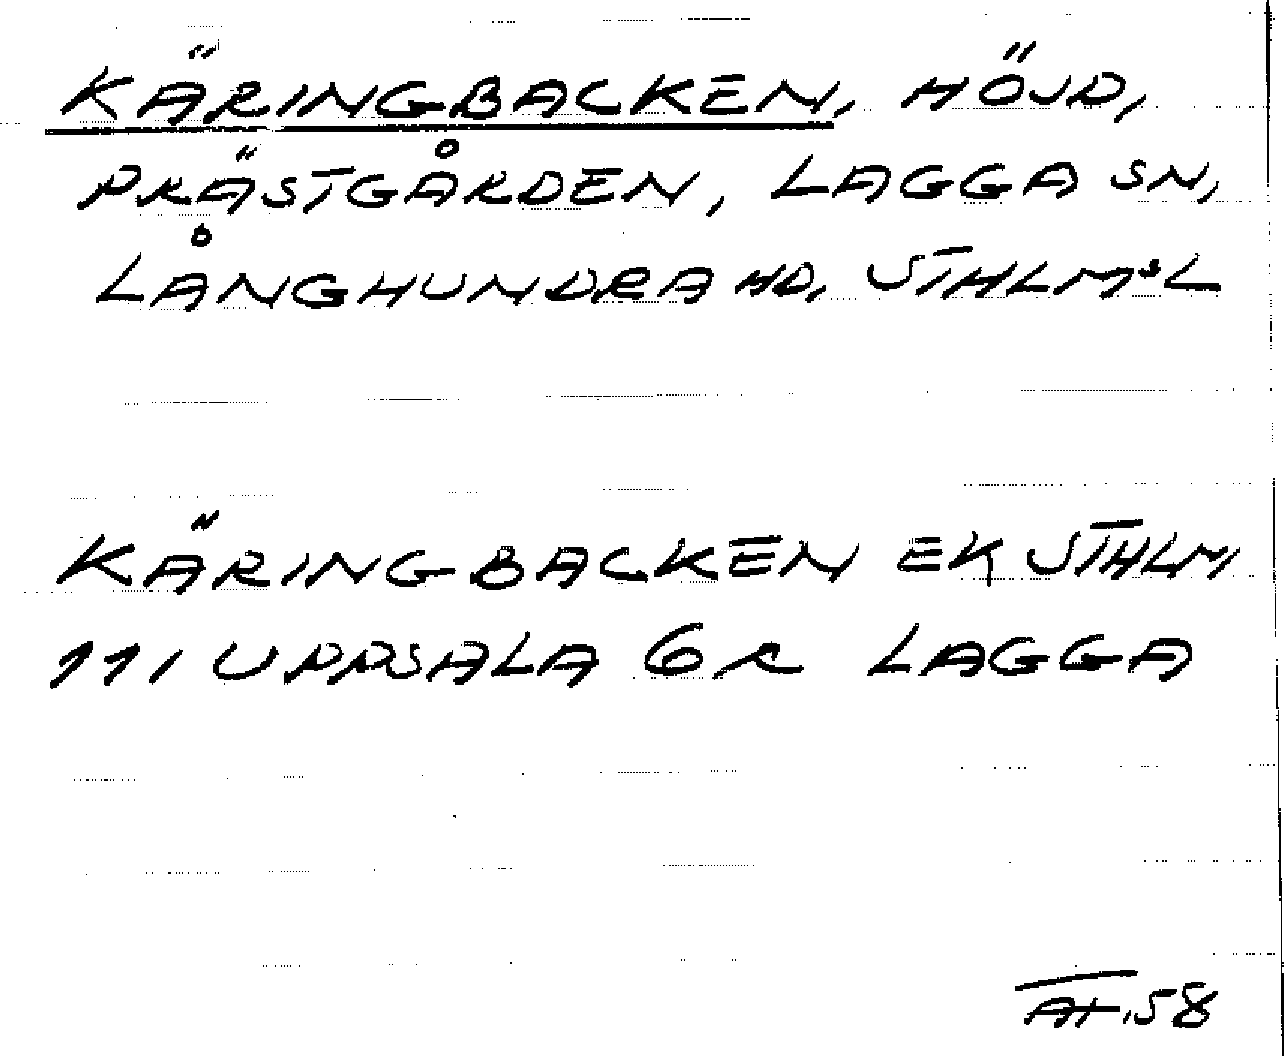 KÄRINGBACKEN, HÖJD,
PRÄSTGÅRDEN, LAGGA SN,
LÅNGHUNDRA HD, STHLMSL
KÄRINGBACKEN EK STHLM
111 UPPSALA 6 R LAGGA
58